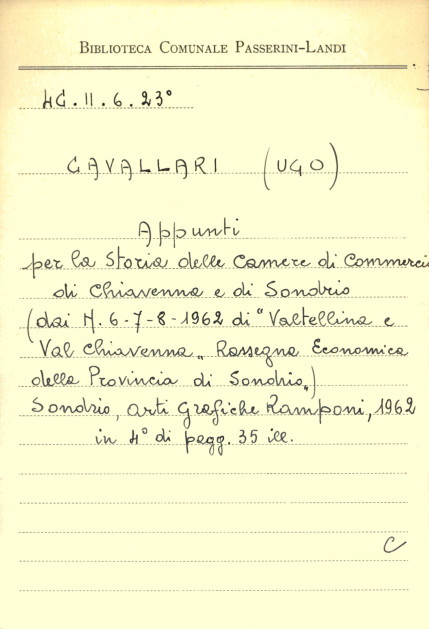 BIBLIOTECA COMUNALE PASSERINI-LANDI
4C.II.6.23°
CAVALLARI (UGO)
Appunti
per la Storia delle Camere di Commercio
di Chiavenna e di Sondrio
(dai N. 6-7-8-1962 di "Valtellina e
Val Chiavenna„ Rassegna Economica
della Provincia di Sondrio„)
Sondrio, Arti Grafiche Ramponi, 1962
in 4° di pagg. 35 ill.
C